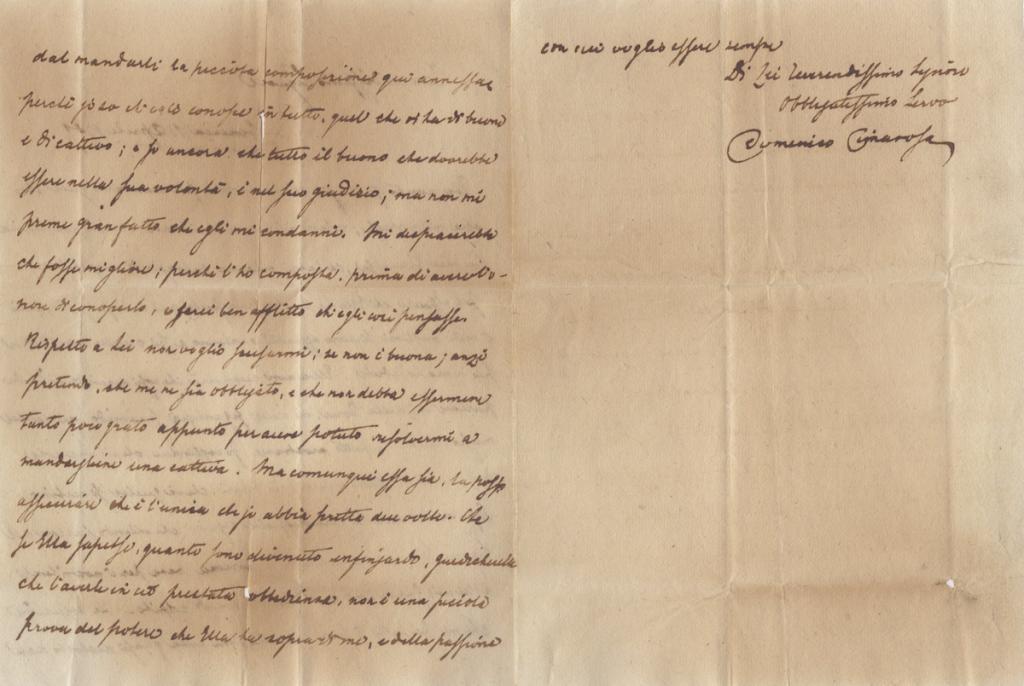 dal mandarli la picciola composizione qui annessa,
perchè io so ch'egli conosce in tutto, quel che vi ha di buono
e di cattivo; e so ancora che tutto il buono che dovrebbe
essere nella sua volontà, è nel suo giudizio; ma non mi
preme gran fatto che egli mi condanni. Mi dispiacerebbe
che fosse migliore; perchè l'ho composta, prima di avere l'o-
nore di conoscerlo, e sarei ben afflitto ch'egli così pensasse.
Rispetto a Lei non voglio scusarmi; se non è buona; anzi
pretendo, che me ne sia obbligato, e che non debba essermene
tanto poco grato appunto per aver potuto risolvermi a
mandargliene una cattiva. Ma comunque essa sia, la posso
assicurare che è l'unica ch'io abbia fatta due volte. Che
se Ella sapesse, quanto sono divenuto infingardo,
che l'averle in ciò prestata obbedienza, non è una piccola
prova del potere che Ella ha sopra di me, e della passione
con cui voglio essere sempre
Di Lei Reverendissimo Signore
Obbligatissimo Servo
Domenico Cimarosa